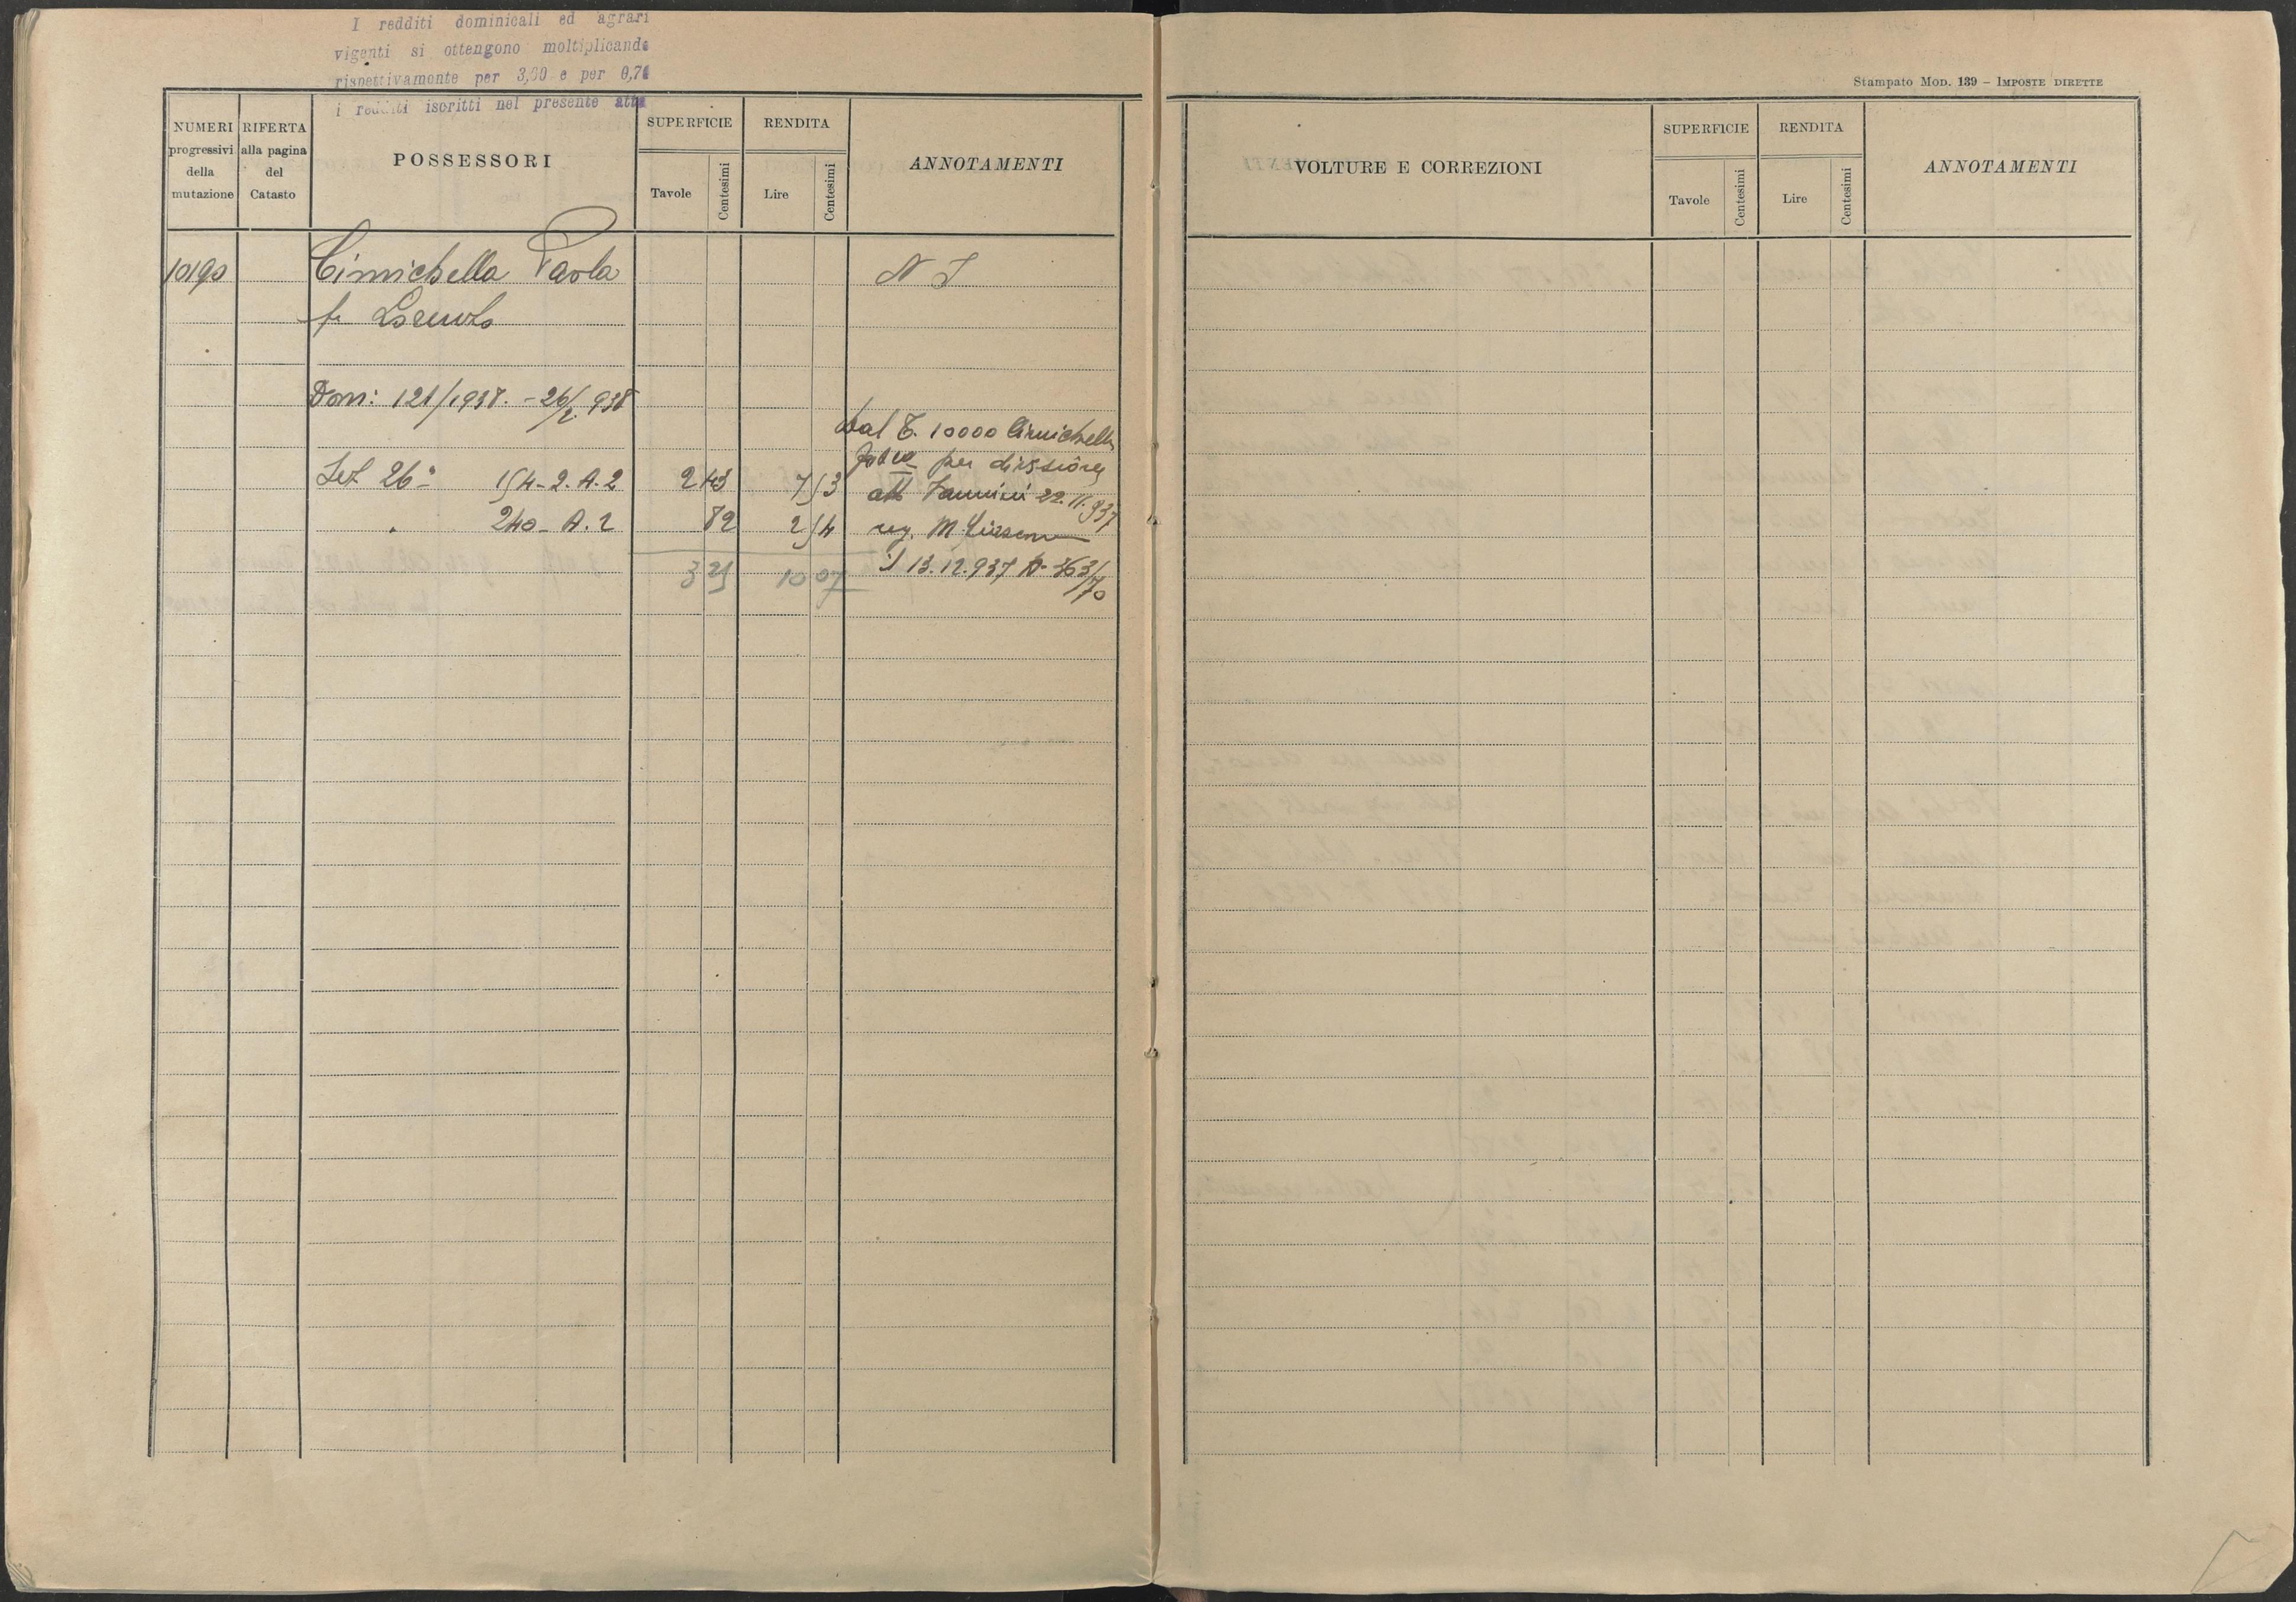 I redditi dominicali ed agrari
vigenti si ottengono moltiplicando
rispettivamente per 3,60 e per 0,70
i redditi iscritti nel presente atto
Stampato Mod. 139 – IMPOSTE DIRETTE
NUMERI progressivi della mutazione
RIFERTA alla pagina del Catasto
POSSESSORI
SUPERFICIE
Tavole
Centesimi
RENDITA
Lire
Centesimi
ANNOTAMENTI
VOLTURE E CORREZIONI
SUPERFICIE
Tavole
Centesimi
RENDITA
Lire
Centesimi
ANNOTAMENTI
10190 Cimichella Paola N I
fu Lorenzo
Dom: 121/1938. - 26/2 938
Dal T. 10000 Cimichella
per divisione
Sez 26ª 154-2. A. 2 2 43 7 53 att 22.11.937
" 240 - A. 2 82 2 54 reg. M.
3 25 10 07 il 13.12.937 N. 363/70